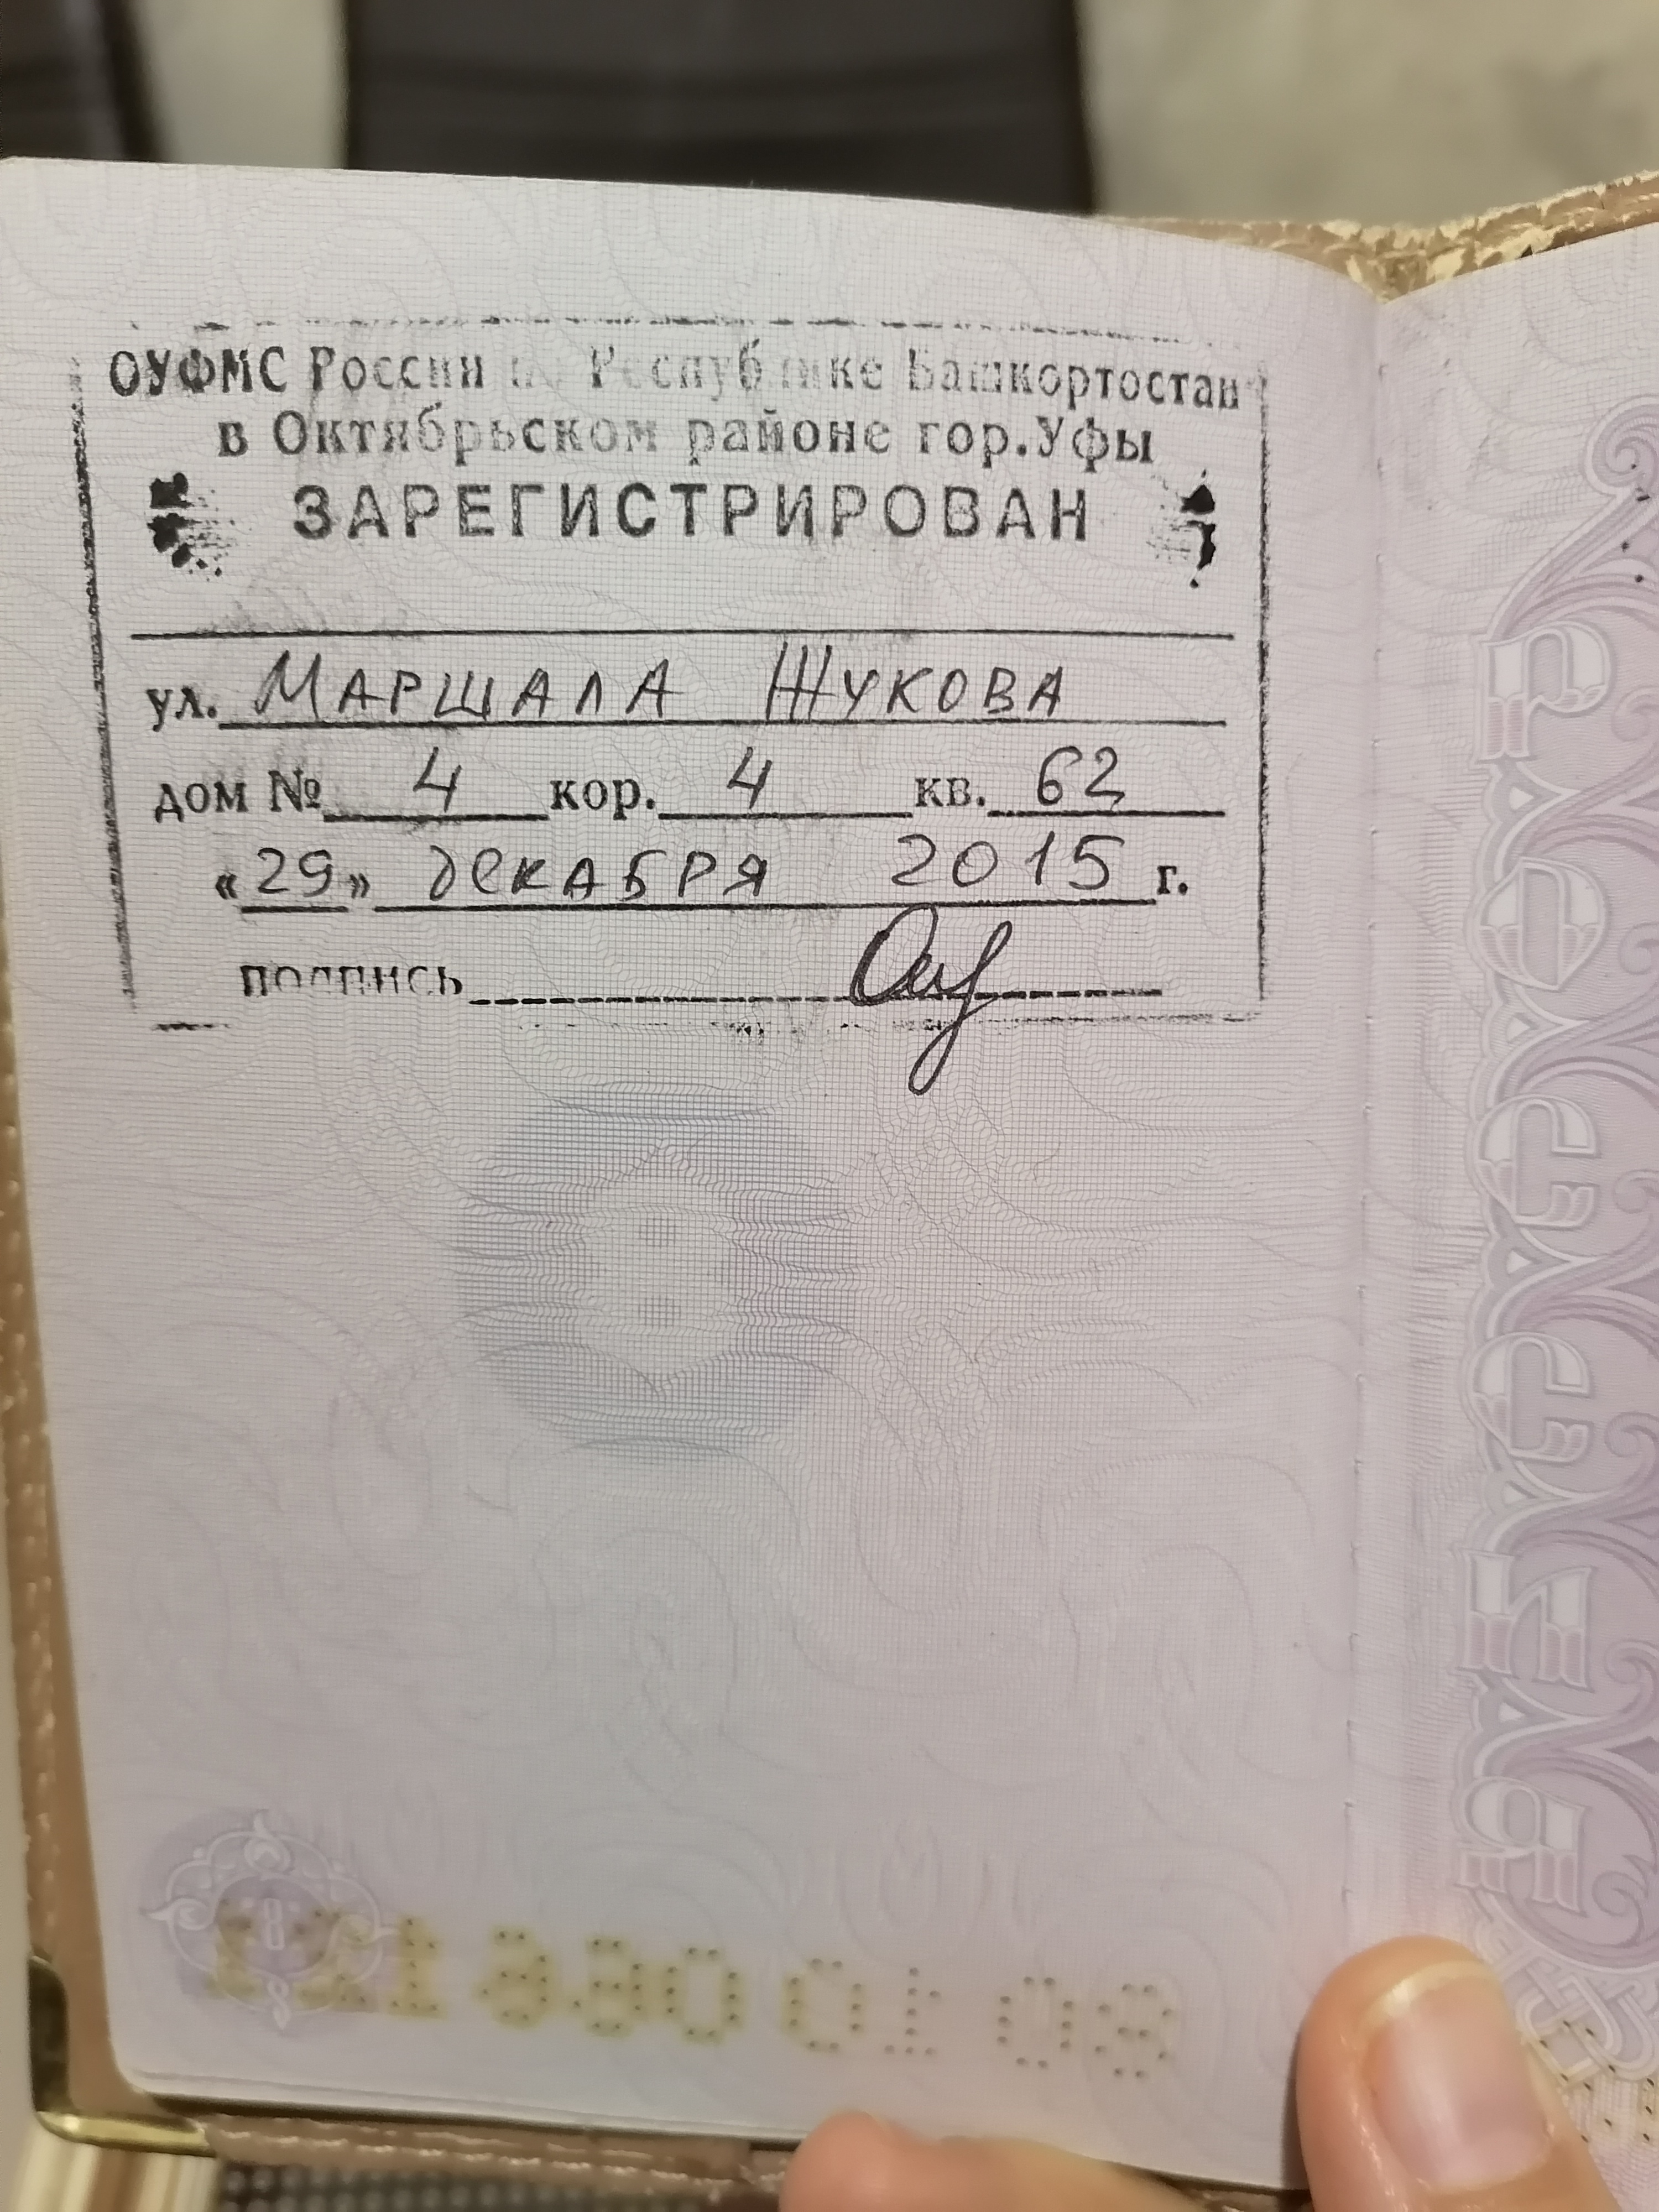 ОУФМС России по Республике Башкортостан
в Октябрьском районе гор.Уфы
ЗАРЕГИСТРИРОВАН
ул. МАРШАЛА ЖУКОВА
дом № 4 кор. 4 кв. 62
«29» декабря 2015 г.
подпись